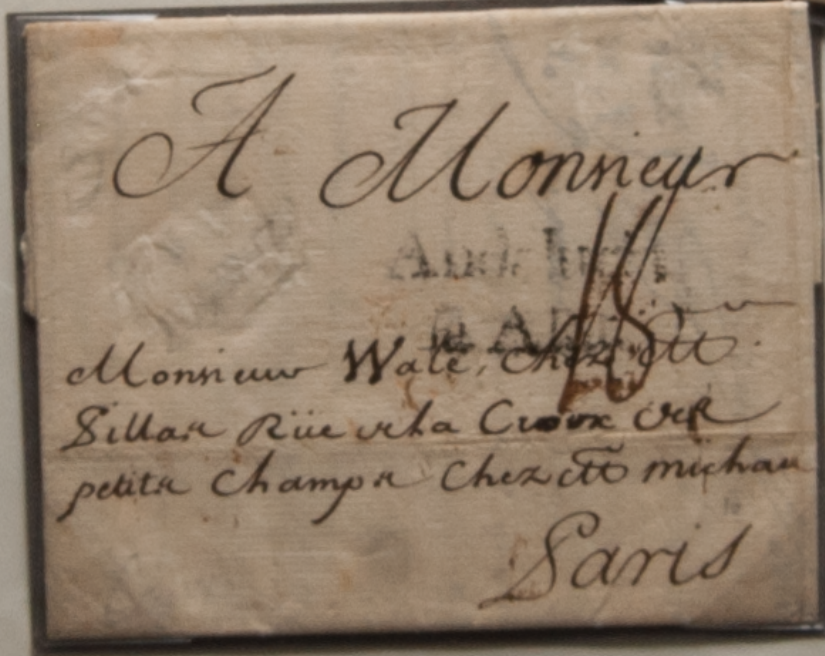 A Monsieur
Andalucia
Monsieur Wale, chez Mr
Rüe de la Croix des
petits Champs Chez Mr michau
Paris